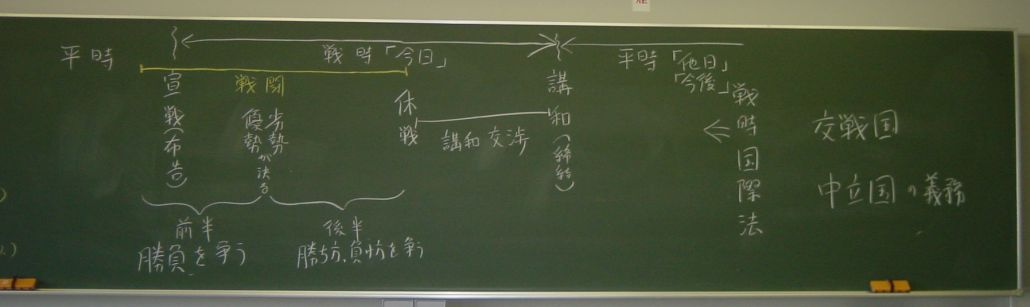 平時
戦時「今日」
平時「他日」
「今後」
宣戦(布告)
戦闘
優勢
劣勢
が決る
休戦
講和交渉
講和(締結)
戦時国際法
交戦国
中立国の義務
前半
勝負を争う
後半
勝ち方、負け方を争う